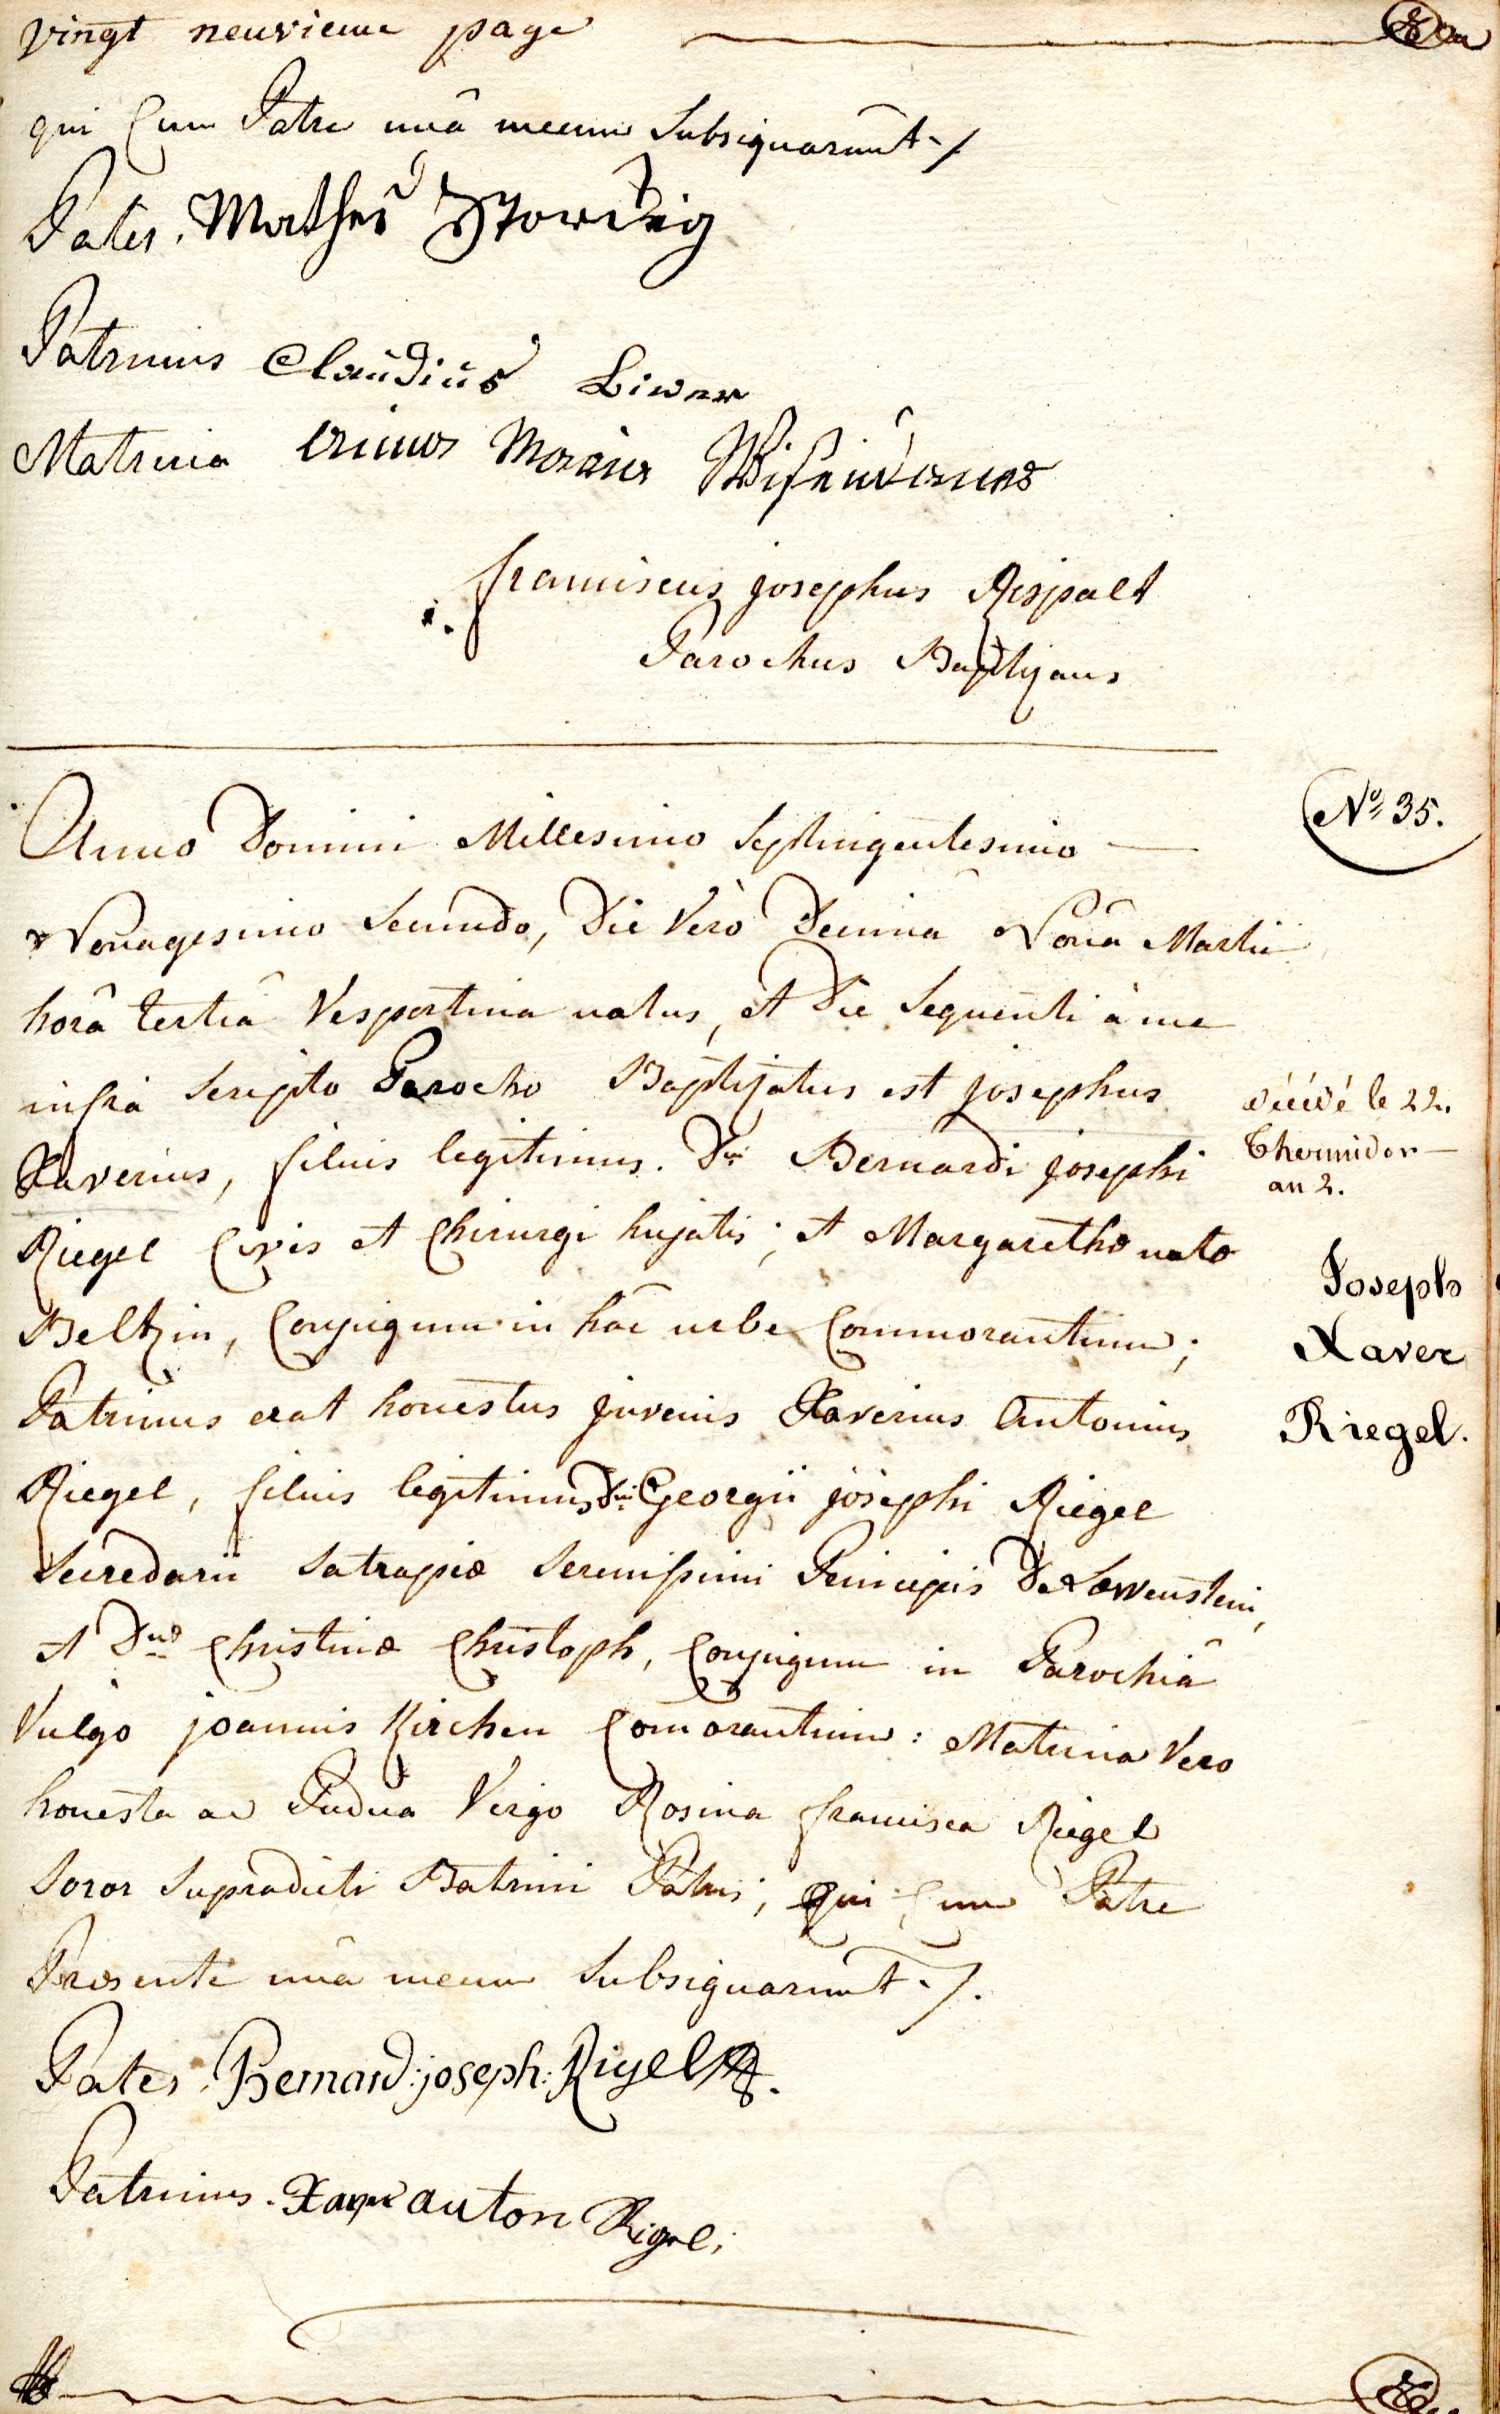 vingt neuvieme page
qui Cum Patre unâ mecum Subsignarunt ./
Pater. Mathes Storvig
Patrinus Claudius Liwer
Matrina Anna Maria
franciscus josephus Rispalt
Parochus Baptizans
Nº 35.
Anno Domini Millesimo Septingentesimo
Nonagesimo Secundo, Die Verò Decimâ Nonâ Martii
horâ tertiâ Vespertina natus, et Die Sequenti à me
infrà Scripto Parocho Baptizatus est josephus
Xaverius, filius legitimus. Dni Bernardi josephi
Riegel Civis et Chirurgi hujatis; et Margarethæ natæ
Beltzin, Conjugum in hâc urbe Commorantium;
Patrinus erat honestus juvenis Xaverius Antonius
Riegel, filius legitimus Dni Georgii josephi Riegel
Secredarii Satrapiæ Serenissimi Principis De Lœwenstein,
et Dnæ Christinæ Christoph, Conjugum in Parochiâ
Vulgo joannis Kirchen Comorantium: Matrina Vero
honesta ac Pudica Virgo Rosina francisca Riegel
Soror Supradicti Batrini Patrini; Qui Cum Patre
Præsente unâ mecum Subsignarunt ./.
Pater. Bernard: joseph: Rigel
Patrinus. Xaver anton Rigel;
décédé le 22.
Thermidor
an 2.
Joseph
Xaver
Riegel.